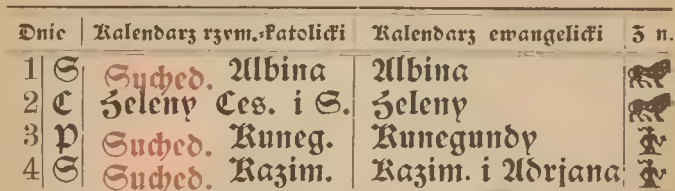 Dnie Kalendarz rzym.-katolicki Kalendarz ewangelicki Z n.
1 S Suched. Albina Albina
2 C Heleny Ces. i S. Heleny
3 P Suched. Kuneg. Kunegundy
4 S Suched. Kazim. Kazim. i Adrjana